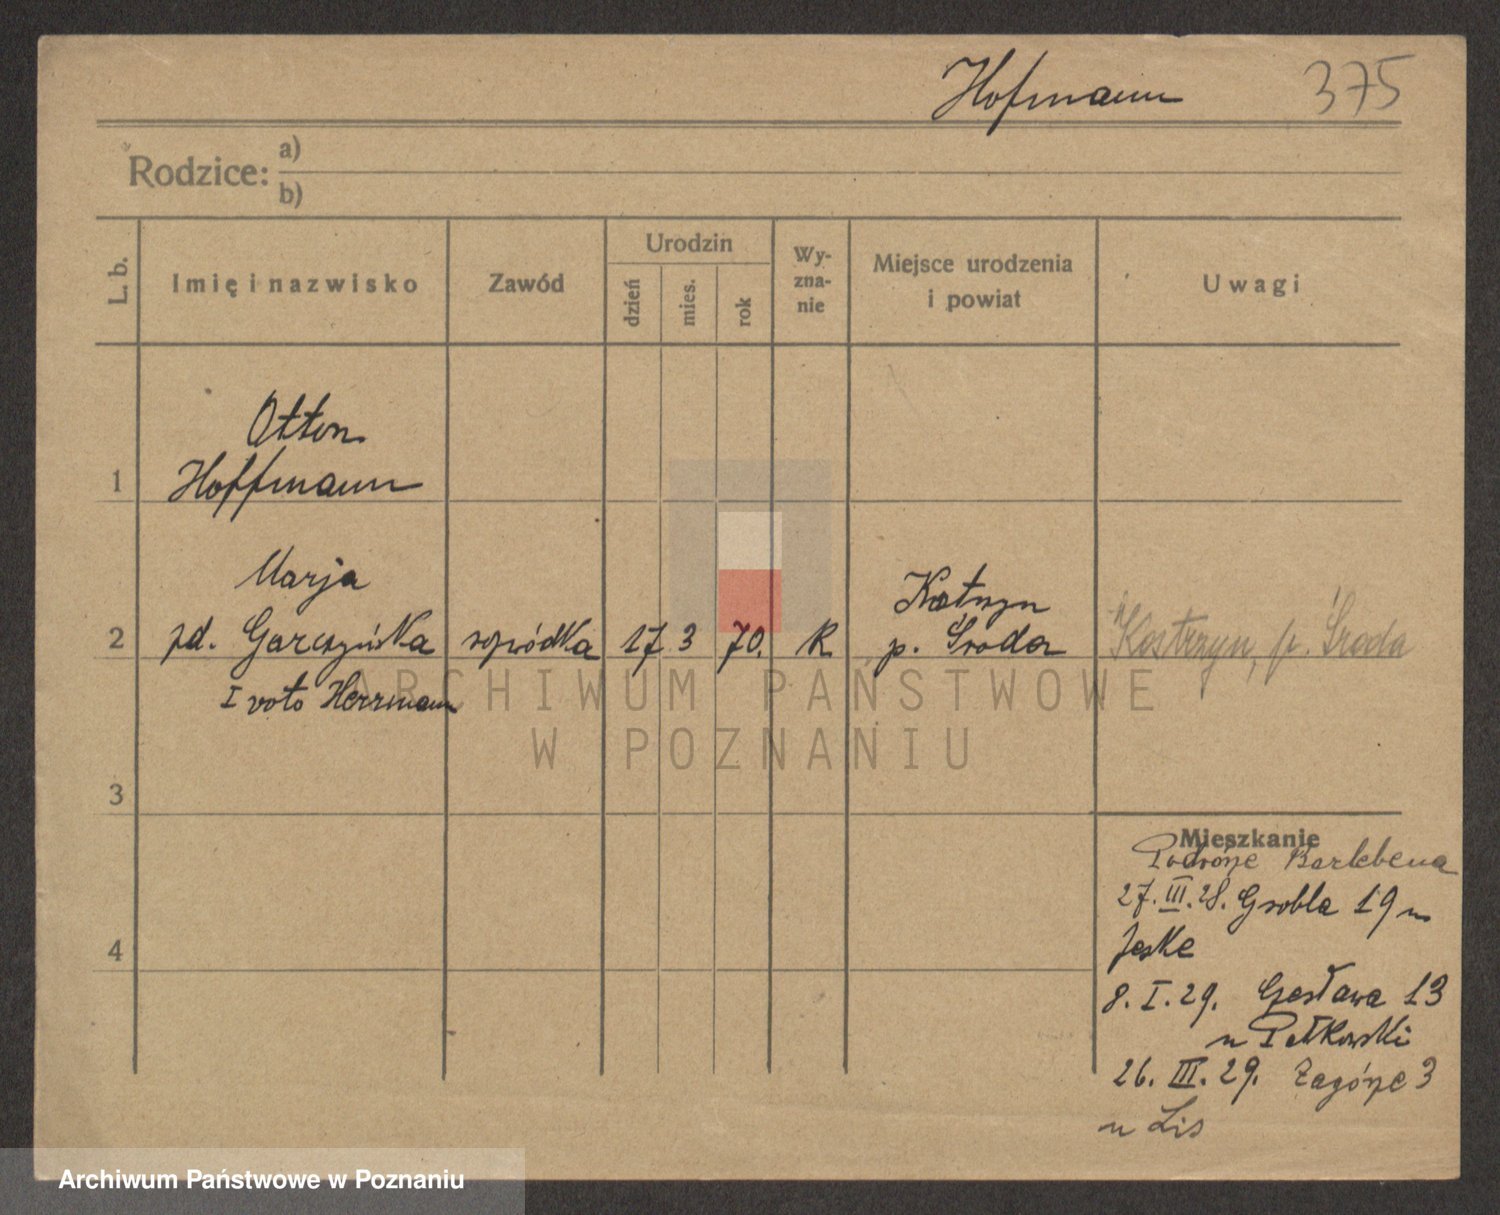 Hofmann 375
Rodzice: a)
b)
L. b.
Imię i nazwisko
Zawód
Urodzin
dzień
mies.
rok
Wy-
zna-
nie
Miejsce urodzenia
i powiat
Uwagi
Otton
1 Hoffmann
Marja
2 zd. Garczyńska
I voto Herrmann
17 3 70. R.
p. Środa
Kostrzyn, p. Środa
ARCHIWUM PAŃSTWOWE
W POZNANIU
3
4
Mieszkanie
27.III.28. Grobla 19 u
Jeske
8.I.29. 13
u
26.III.29. Zagórze 3
u Lis
Archiwum Państwowe w Poznaniu